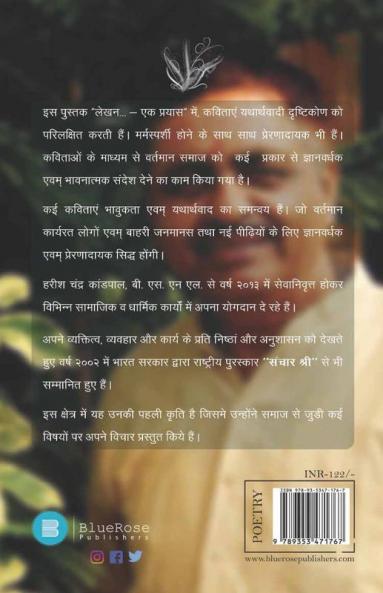 इस पुस्तक "लेखन... – एक प्रयास" में, कविताएं यथार्थवादी दृष्टिकोण को
परिलक्षित करती हैं। मर्मस्पर्शी होने के साथ साथ प्रेरणादायक भी हैं।
कविताओं के माध्यम से वर्तमान समाज को कई प्रकार से ज्ञानवर्धक
एवम् भावनात्मक संदेश देने का काम किया गया है।
कई कविताएं भावुकता एवम् यथार्थवाद का समन्वय हैं। जो वर्तमान
कार्यरत लोगों एवम् बाहरी जनमानस तथा नई पीढ़ियों के लिए ज्ञानवर्धक
एवम् प्रेरणादायक सिद्ध होंगी।
हरीश चंद्र कांडपाल, बी. एस. एन एल. से वर्ष २०१३ में सेवानिवृत्त होकर
विभिन्न सामाजिक व धार्मिक कार्यों में अपना योगदान दे रहे हैं।
अपने व्यक्तित्व, व्यवहार और कार्य के प्रति निष्ठां और अनुशासन को देखते
हुए वर्ष २००२ में भारत सरकार द्वारा राष्ट्रीय पुरस्कार "संचार श्री" से भी
सम्मानित हुए हैं।
इस क्षेत्र में यह उनकी पहली कृति है जिसमे उन्होंने समाज से जुडी कई
विषयों पर अपने विचार प्रस्तुत किये हैं।
INR-122/-
POETRY
ISBN 978-93-5347-176-7
9 789353 471767
BlueRose
Publishers
www.bluerosepublishers.com